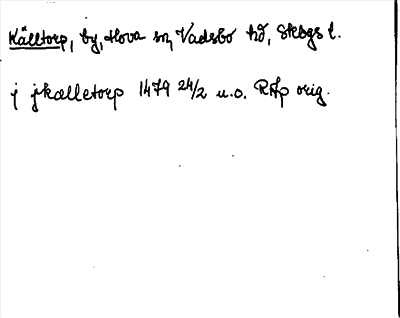 Källtorp, by, Hova sn, Vadsbo hd, Skbgs l.
j jkælletorp 1479 24/2 u.o. RAp orig.